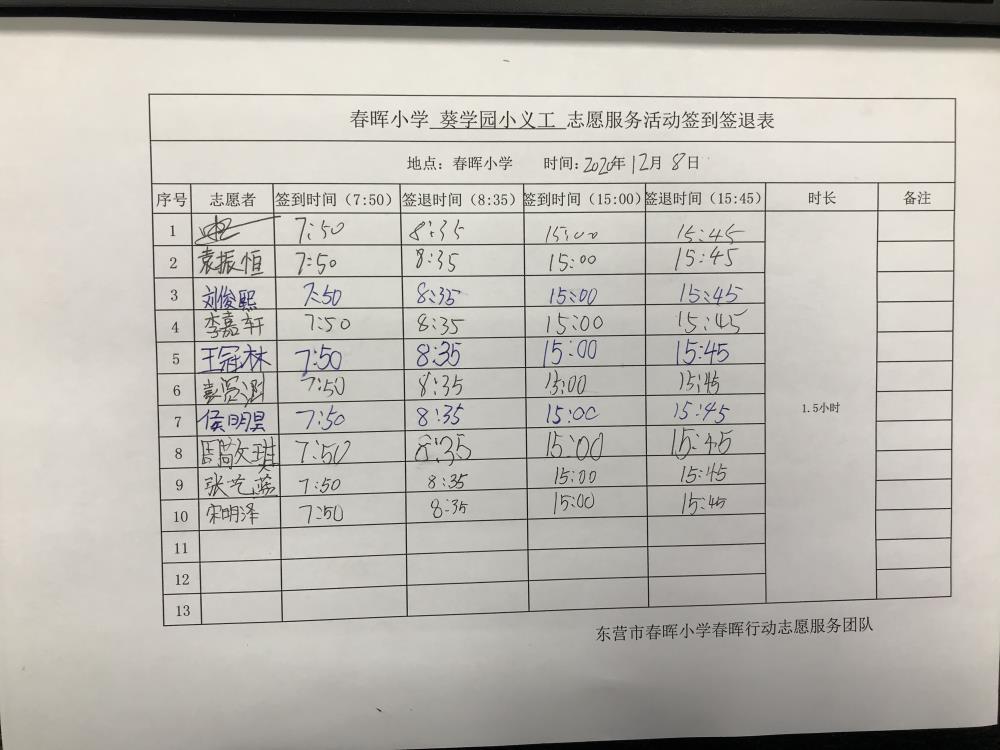 春晖小学 葵学园小义工 志愿服务活动签到签退表
地点：春晖小学 时间：2020年12月8日
序号 志愿者 签到时间（7:50） 签退时间（8:35） 签到时间（15:00） 签退时间（15:45） 时长 备注
1 7:50 8:35 15:00 15:45
2 袁振恒 7:50 8:35 15:00 15:45
3 刘俊熙 7:50 8:35 15:00 15:45
4 李嘉轩 7:50 8:35 15:00 15:45
5 王冠林 7:50 8:35 15:00 15:45
6 7:50 8:35 15:00 15:45
7 侯明昊 7:50 8:35 15:00 15:45
1.5小时
8 周敬文琪 7:50 8:35 15:00 15:45
9 张艺蓝 7:50 8:35 15:00 15:45
10 宋明泽 7:50 8:35 15:00 15:45
11
12
13
东营市春晖小学春晖行动志愿服务团队